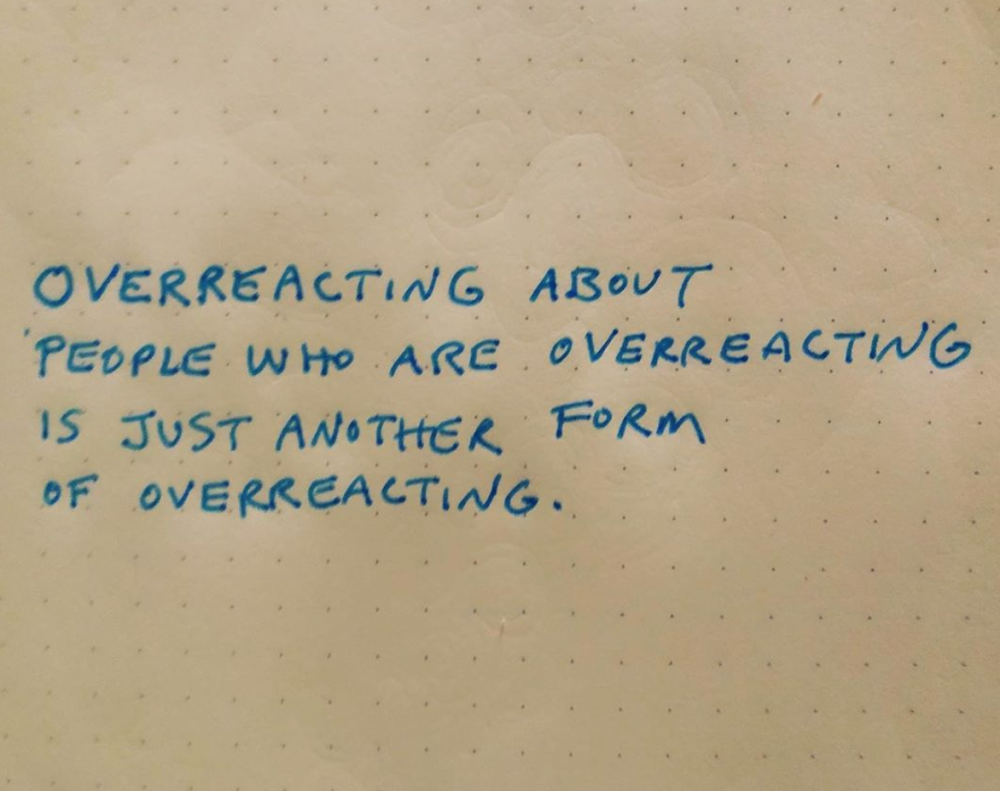 OVERREACTING ABOUT
PEOPLE WHO ARE OVERREACTING
IS JUST ANOTHER FORM
OF OVERREACTING.